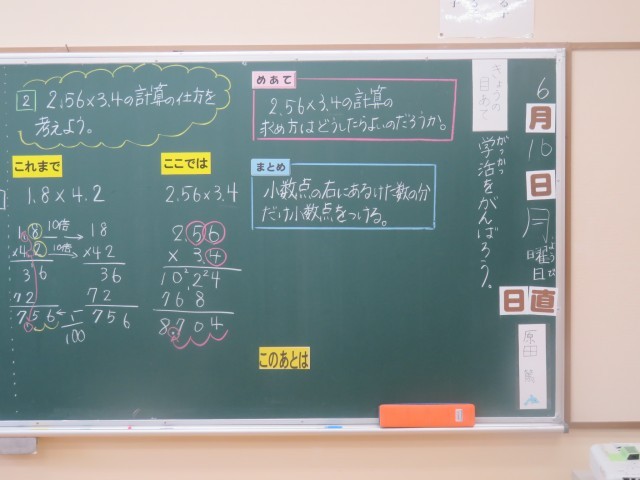 2 2.56×3.4の計算の仕方を
考えよう。
めあて
2.56×3.4の計算の
求め方はどうしたらよいのだろうか。
これまで
1.8×4.2
1.8 10倍 18
×4.2 10倍 ×42
36 36
72 72
7.56 1/100 756
ここでは
2.56×3.4
2.56
× 3.4
1024
768
8.704
まとめ
小数点の右にあるけた数の分
だけ小数点をつける。
このあとは
きょうの
目あて
がっかつ
学活をがんばろう。
6
月
10
日
月
ようび
曜日
日直
原田